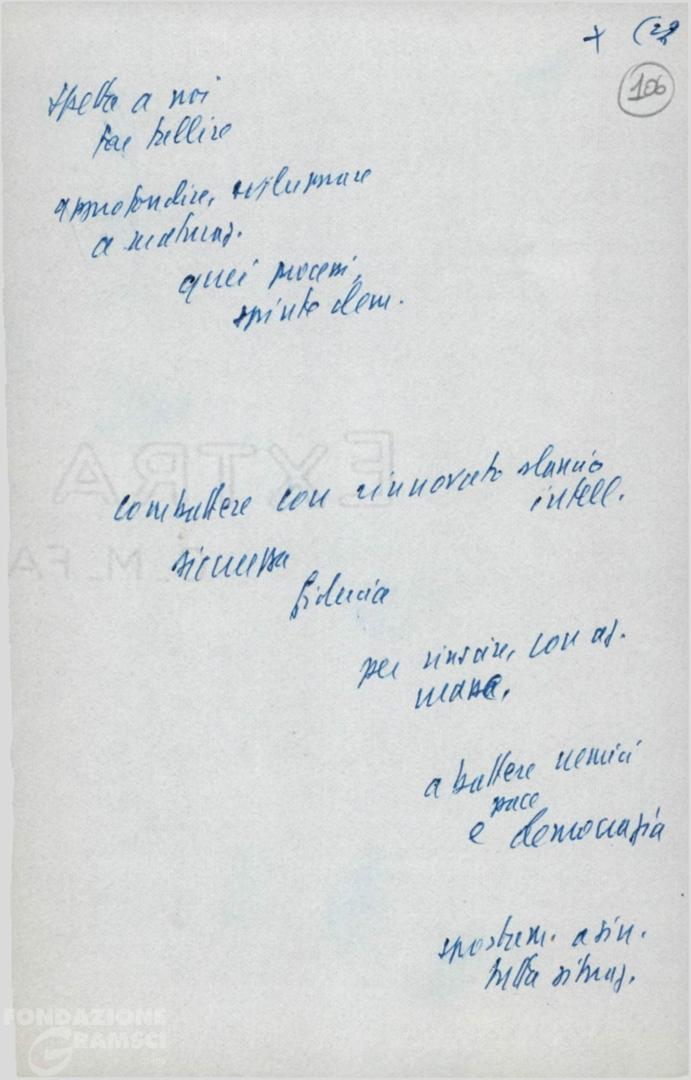 + (22
106
spetta a noi
far bollire
approfondire, sviluppare
a maturaz.
quei processi,
spinte dem.
EXTRA
combattere con rinnovato slancio
intell.
sicurezza
fiducia
per riuscire, con az.
massa,
a battere nemici
pace
e democrazia
spostam. a sin.
tutta situaz.
FONDAZIONE
GRAMSCI